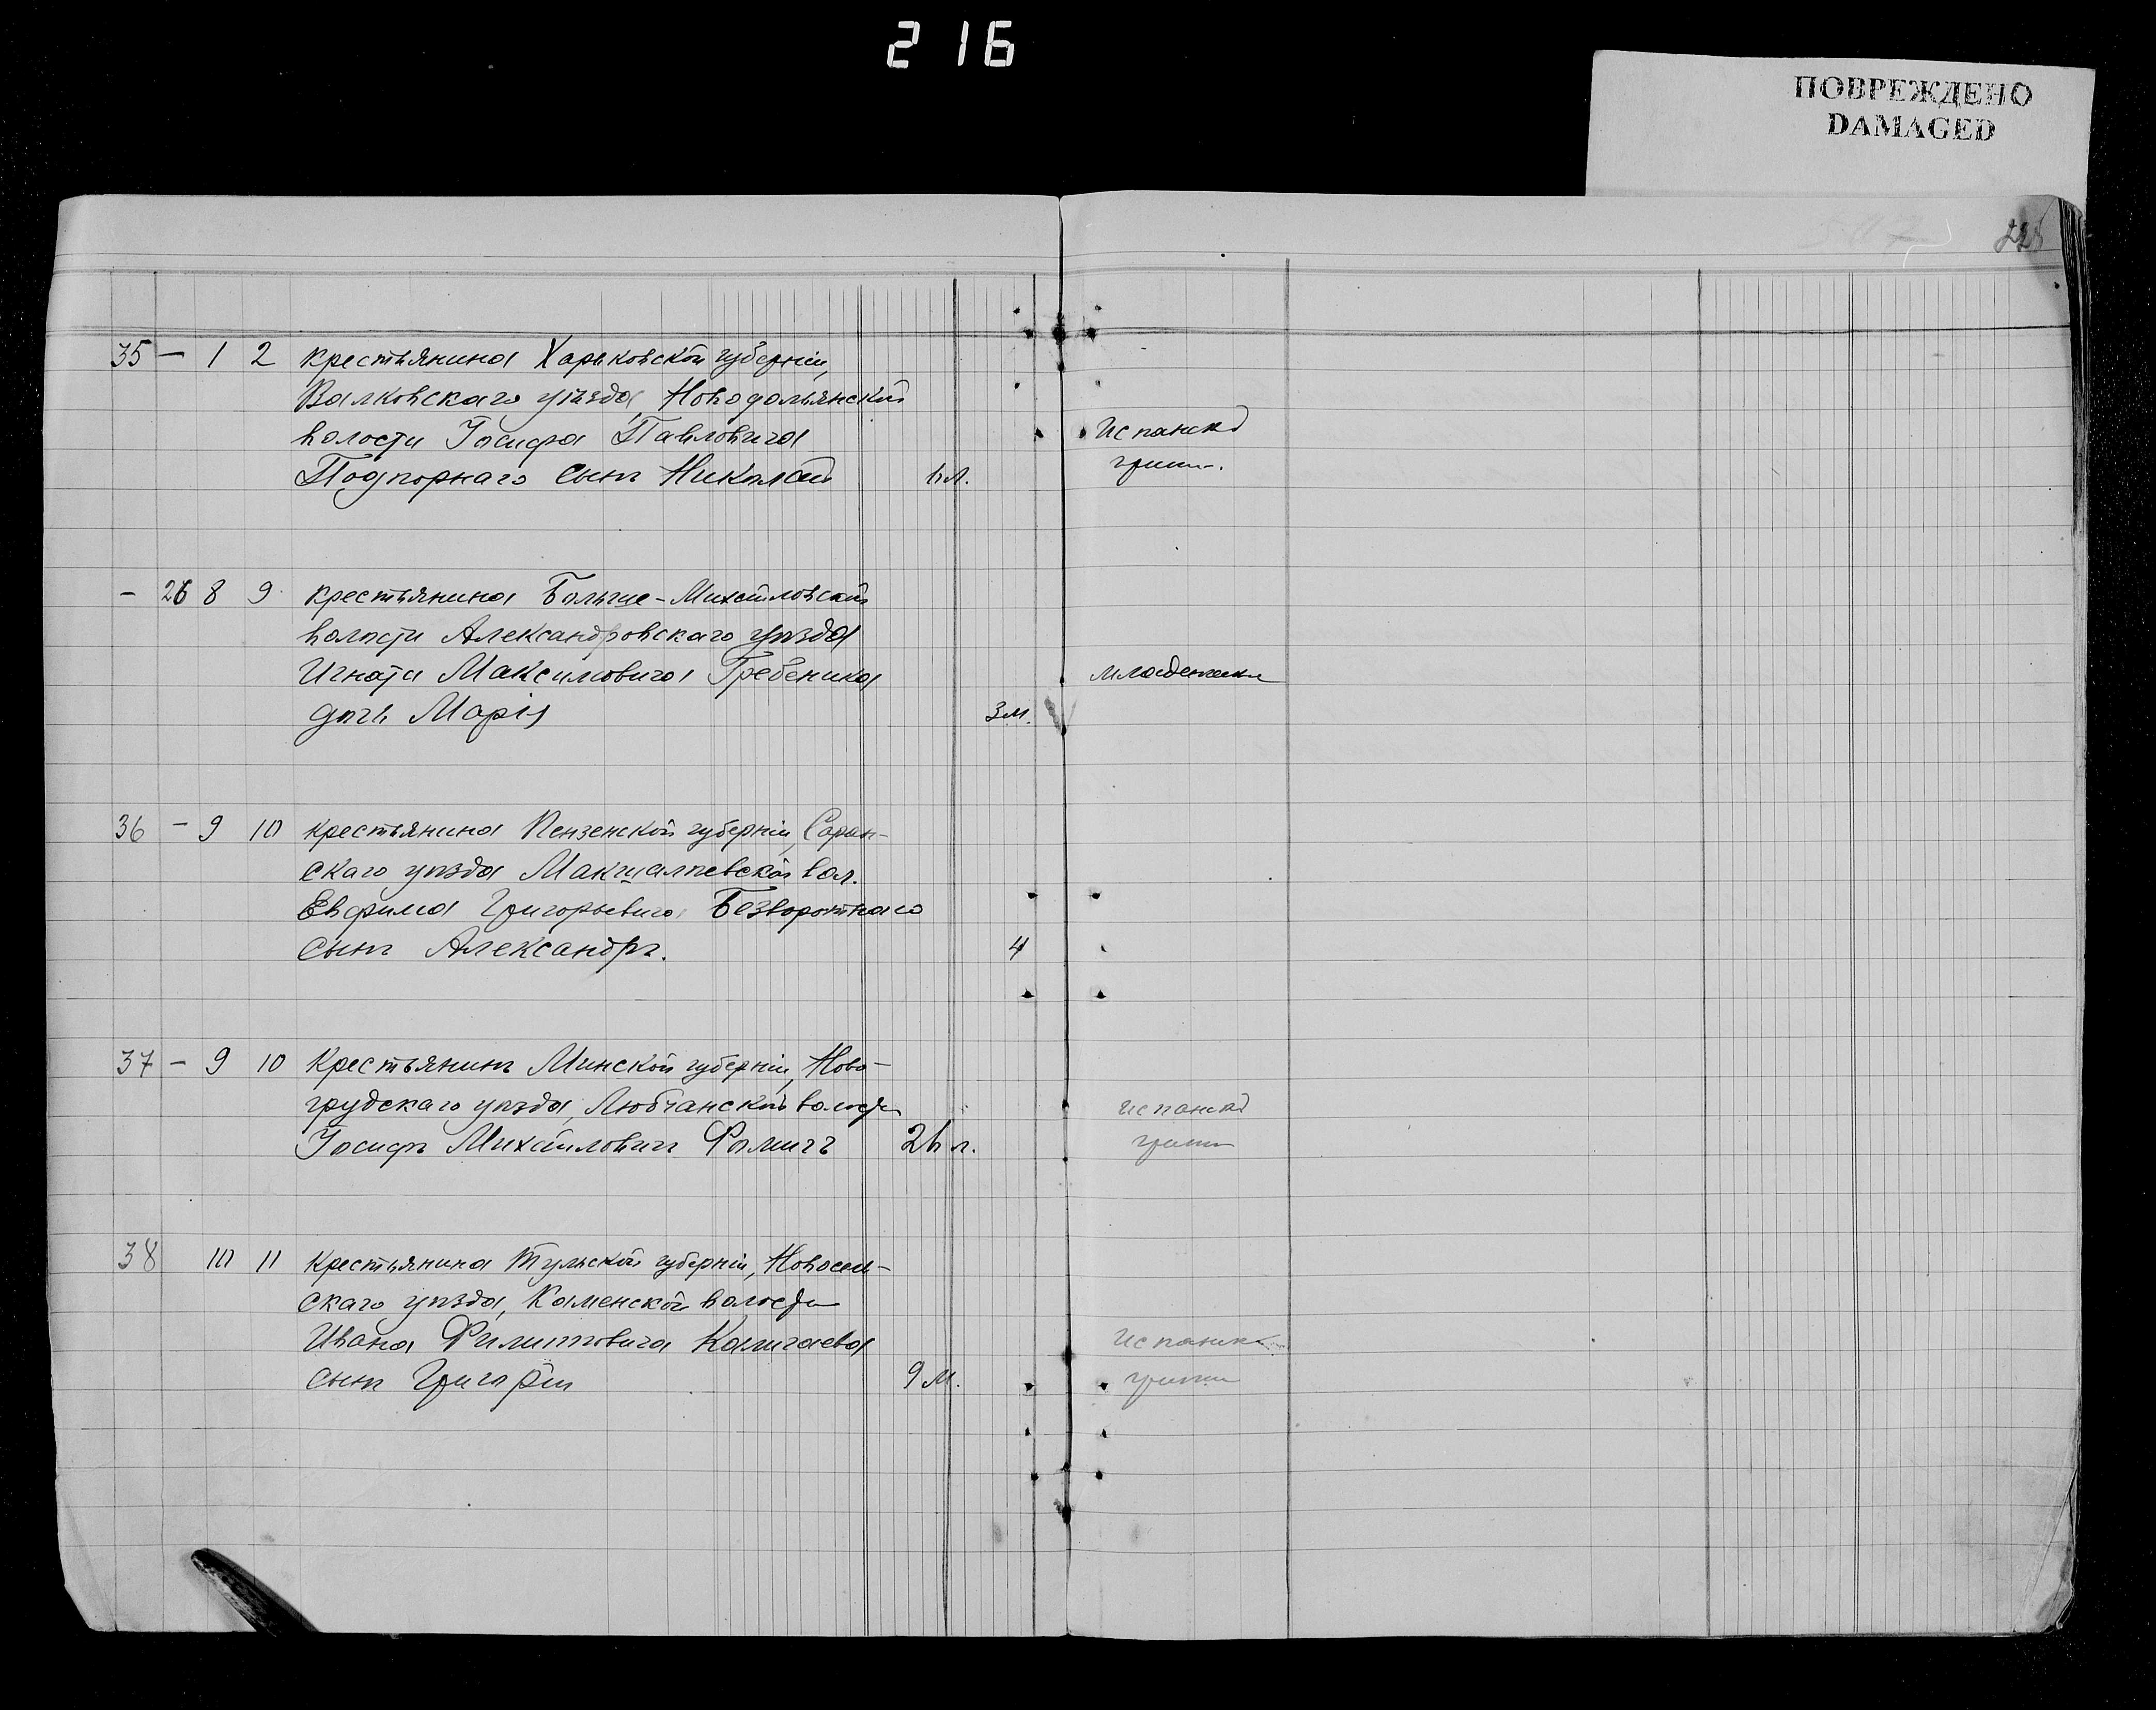 216
ПОВРЕЖДЕНО
DAMAGED
35 — 1 2 Крестьянина Харьковской губерніи,
Валковскаго уѣзда, Новодольянской
волости Іосифа Павловича
Подпорнаго сынъ Николай
Испанкой
грипп.
— 26 8 9 Крестьянина Больше-Михайловской
волости Александровскаго уѣзда
Игната Максимовича Гребеника
дочь Марія 3 м.
младенческ
36 — 9 10 Крестьянина Пензенской губерніи, Саран-
скаго уѣзда Макшалеевской вол.
Евфима Григорьевича Безворотнаго
сынъ Александръ. 4
37 — 9 10 Крестьянинъ Минской губерніи, Ново-
грудскаго уѣзда, Любчанской волости
Іосифъ Михайловичъ Фомичъ 26 л.
испанкой
грипп
38 10 11 Крестьянина Тульской губерніи, Новосил-
скаго уѣзда, Каменской волости
Ивана Филипповича Каличаева
сынъ Григорій 9 м.
Испанка
грипп